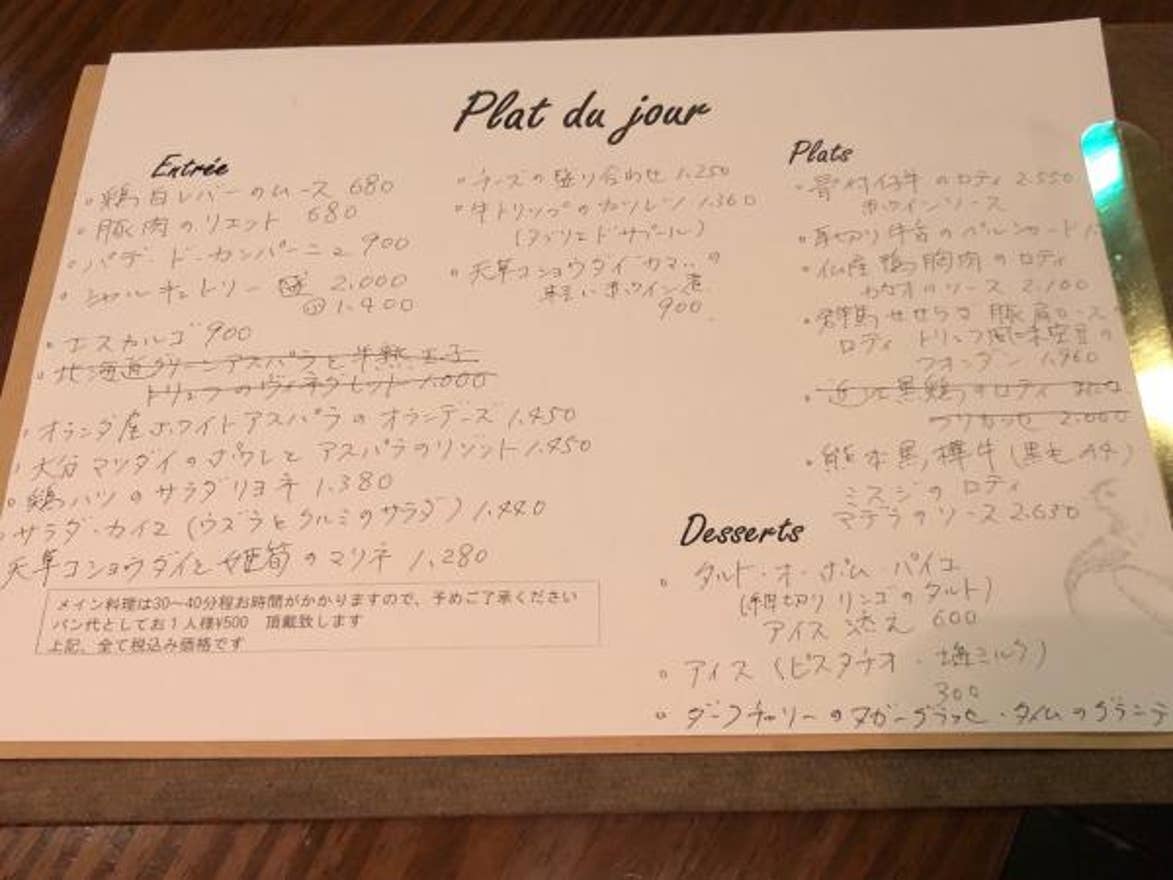 Plat du jour
Entrée
・鶏白レバーのムース 680
・豚肉のリエット 680
・パテ・ド・カンパーニュ 900
・シャルキュトリー 2.000
1.400
・エスカルゴ 900
・北海道グリーンアスパラと半熟玉子
トリュフのヴィネグレット 1.000
・オランダ産ホワイトアスパラのオランデーズ 1.450
・大分マツダイのポワレとアスパラのリゾット 1.450
・鶏ハツのサラダリヨネ 1.380
・サラダ・カイユ (ウズラとクルミのサラダ) 1.440
天草コショウダイと姫筍のマリネ 1.280
メイン料理は30〜40分程お時間がかかりますので、予めご了承ください
パン代としてお1人様¥500 頂戴致します
上記、全て税込み価格です
・チーズの盛り合わせ 1.250
・牛トリップのカツレツ 1.360
(タブリエ ド サプール)
・天草コショウダイカマの
軽い白ワイン煮
900
Plats
・骨付仔牛のロティ 2.550
赤ワインソース
・厚切り牛舌の
・仏産鴨胸肉のロティ
カカオのソース 2.100
・群馬せせらぎ豚肩ロース
ロティ トリュフ風味空豆の
フォンダン 1.960
・近江黒鶏のロティ
2.000
・熊本黒樺牛 (黒毛和牛)
ミスジのロティ
マデラのソース 2.650
Desserts
・タルト・オ・ポム パイユ
(細切りリンゴのタルト)
アイス添え 600
・アイス (ピスタチオ・塩ミルク)
300
・ダークチェリーのヌガーグラッセ・タイムのグラニテ